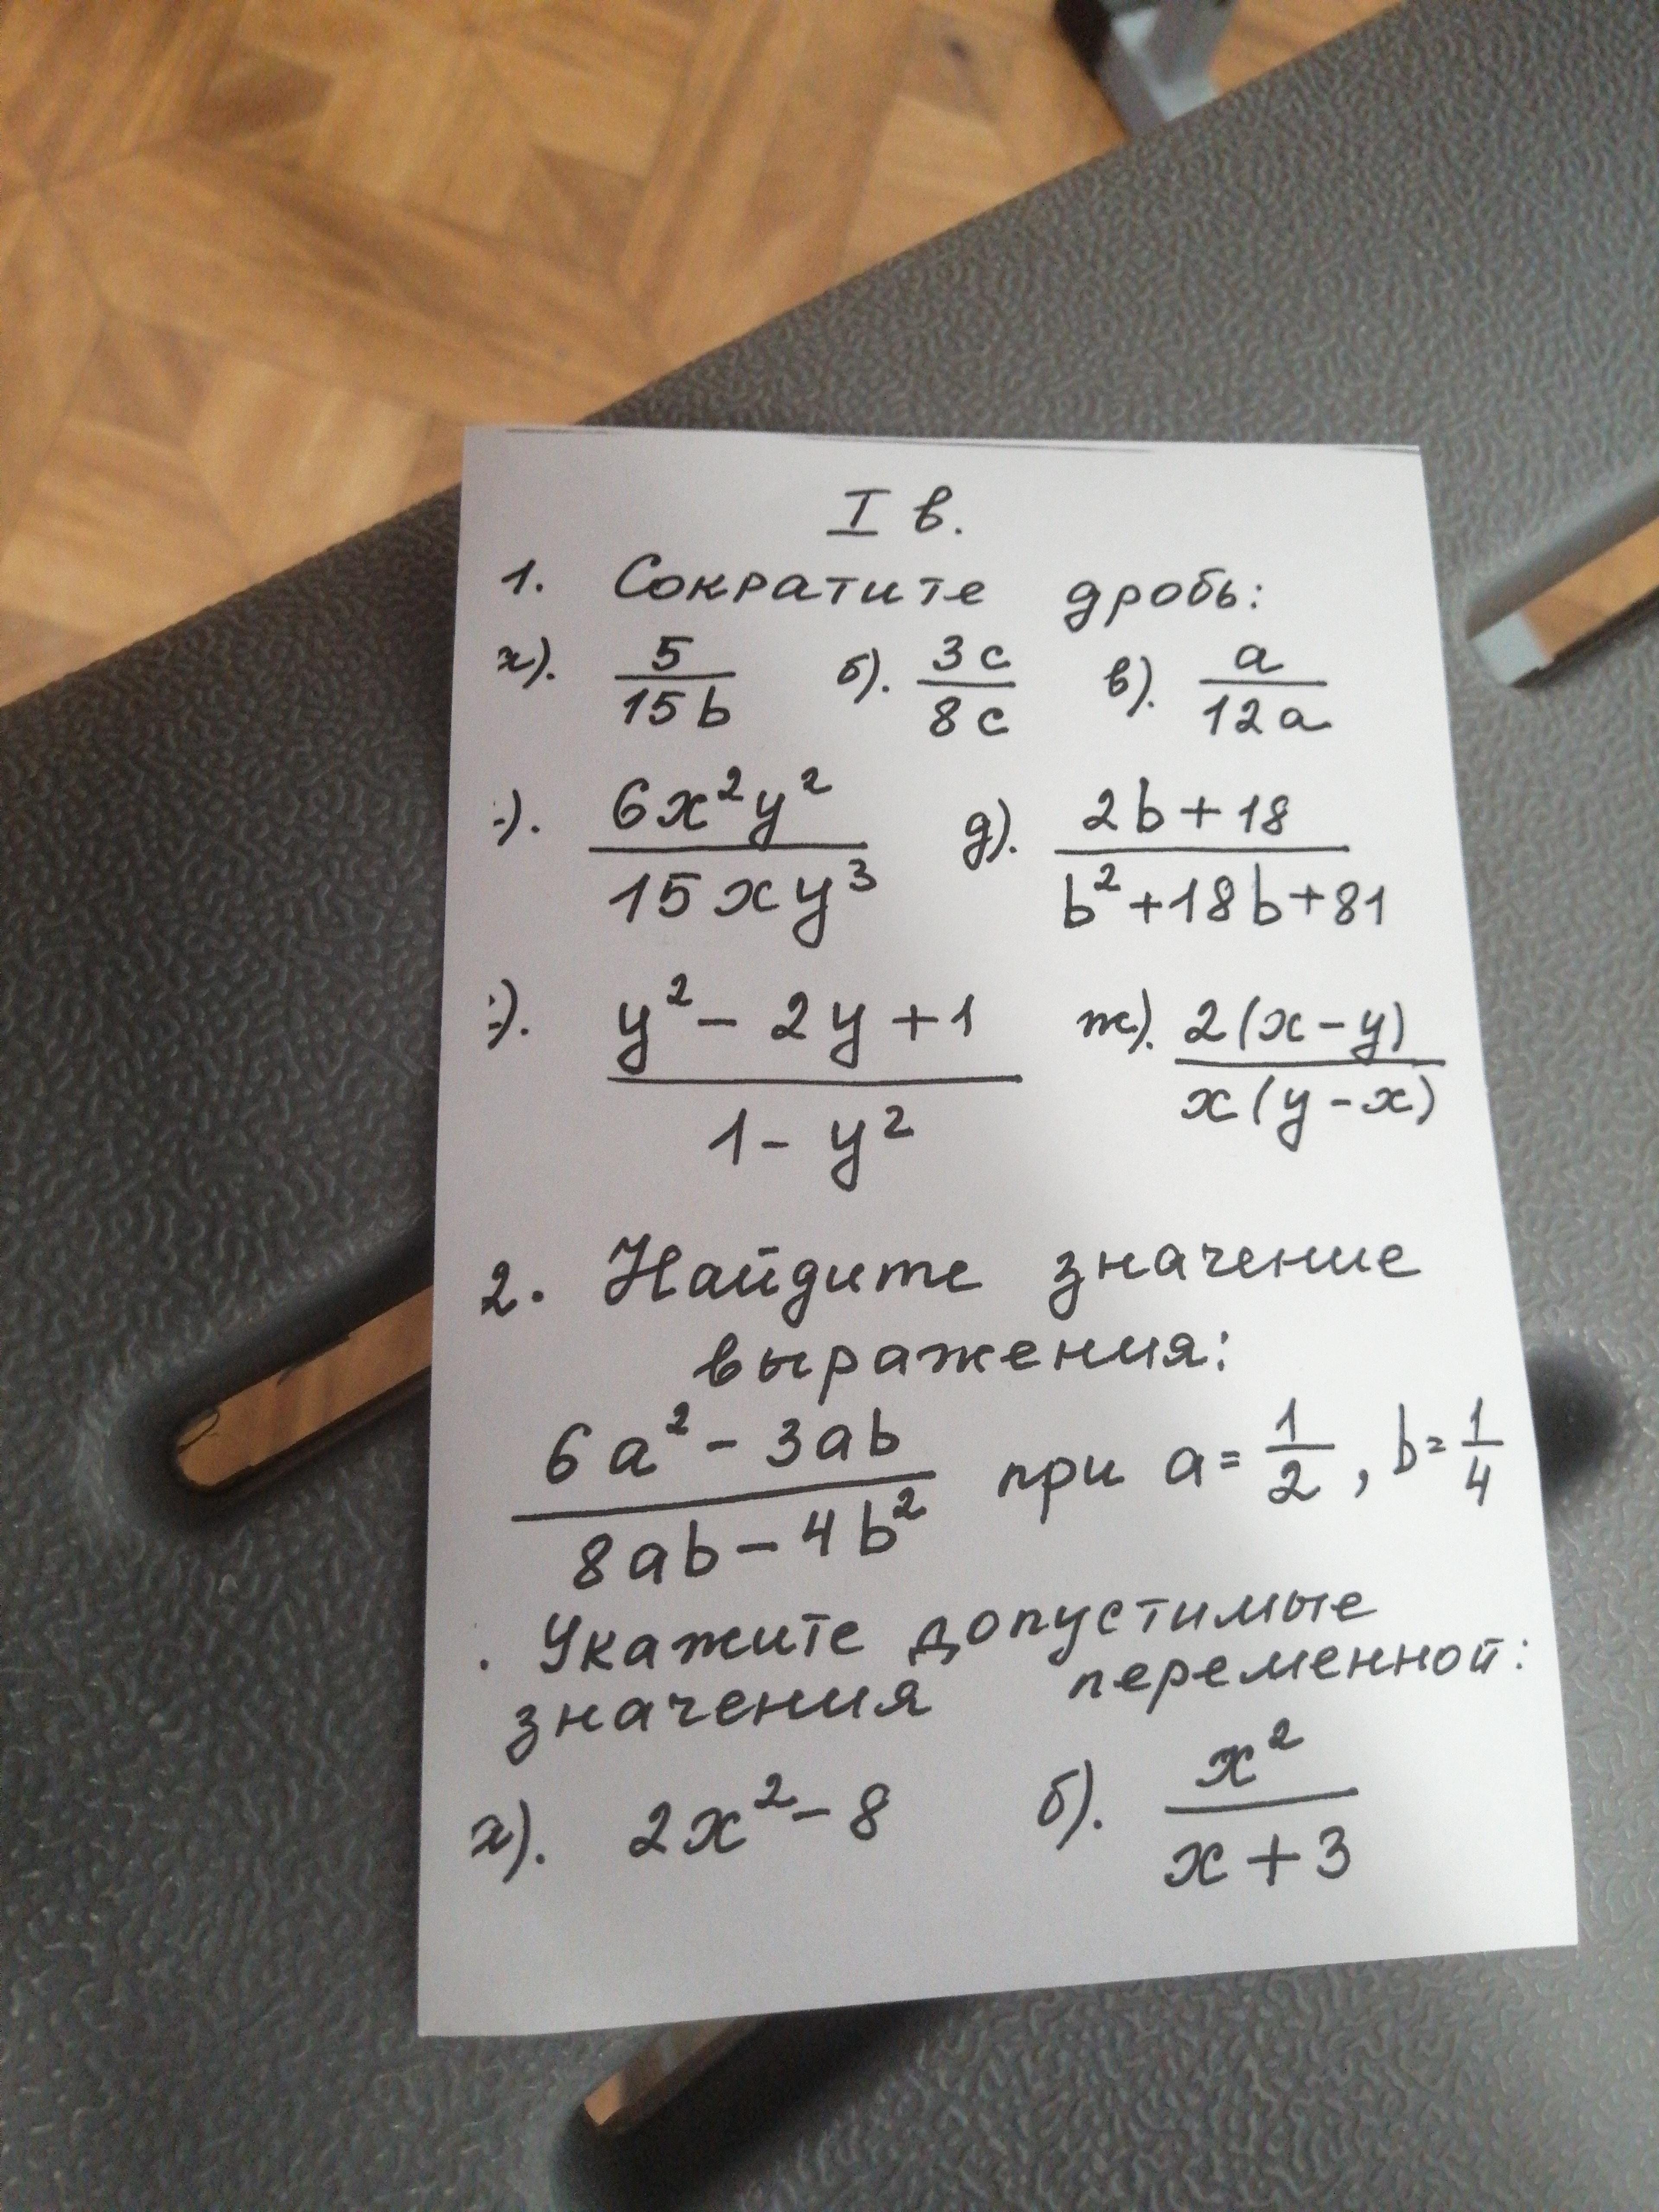 I в.
1. Сократите дробь:
а). 5/15b б). 3c/8c в). a/12a
). 6x²y²/15xy³ д). (2b+18)/(b²+18b+81)
). (y²-2y+1)/(1-y²) ж). 2(x-y)/x(y-x)
2. Найдите значение
выражения:
(6a²-3ab)/(8ab-4b²) при a=1/2, b=1/4
. Укажите допустимые
значения переменной:
а). 2x²-8 б). x²/(x+3)